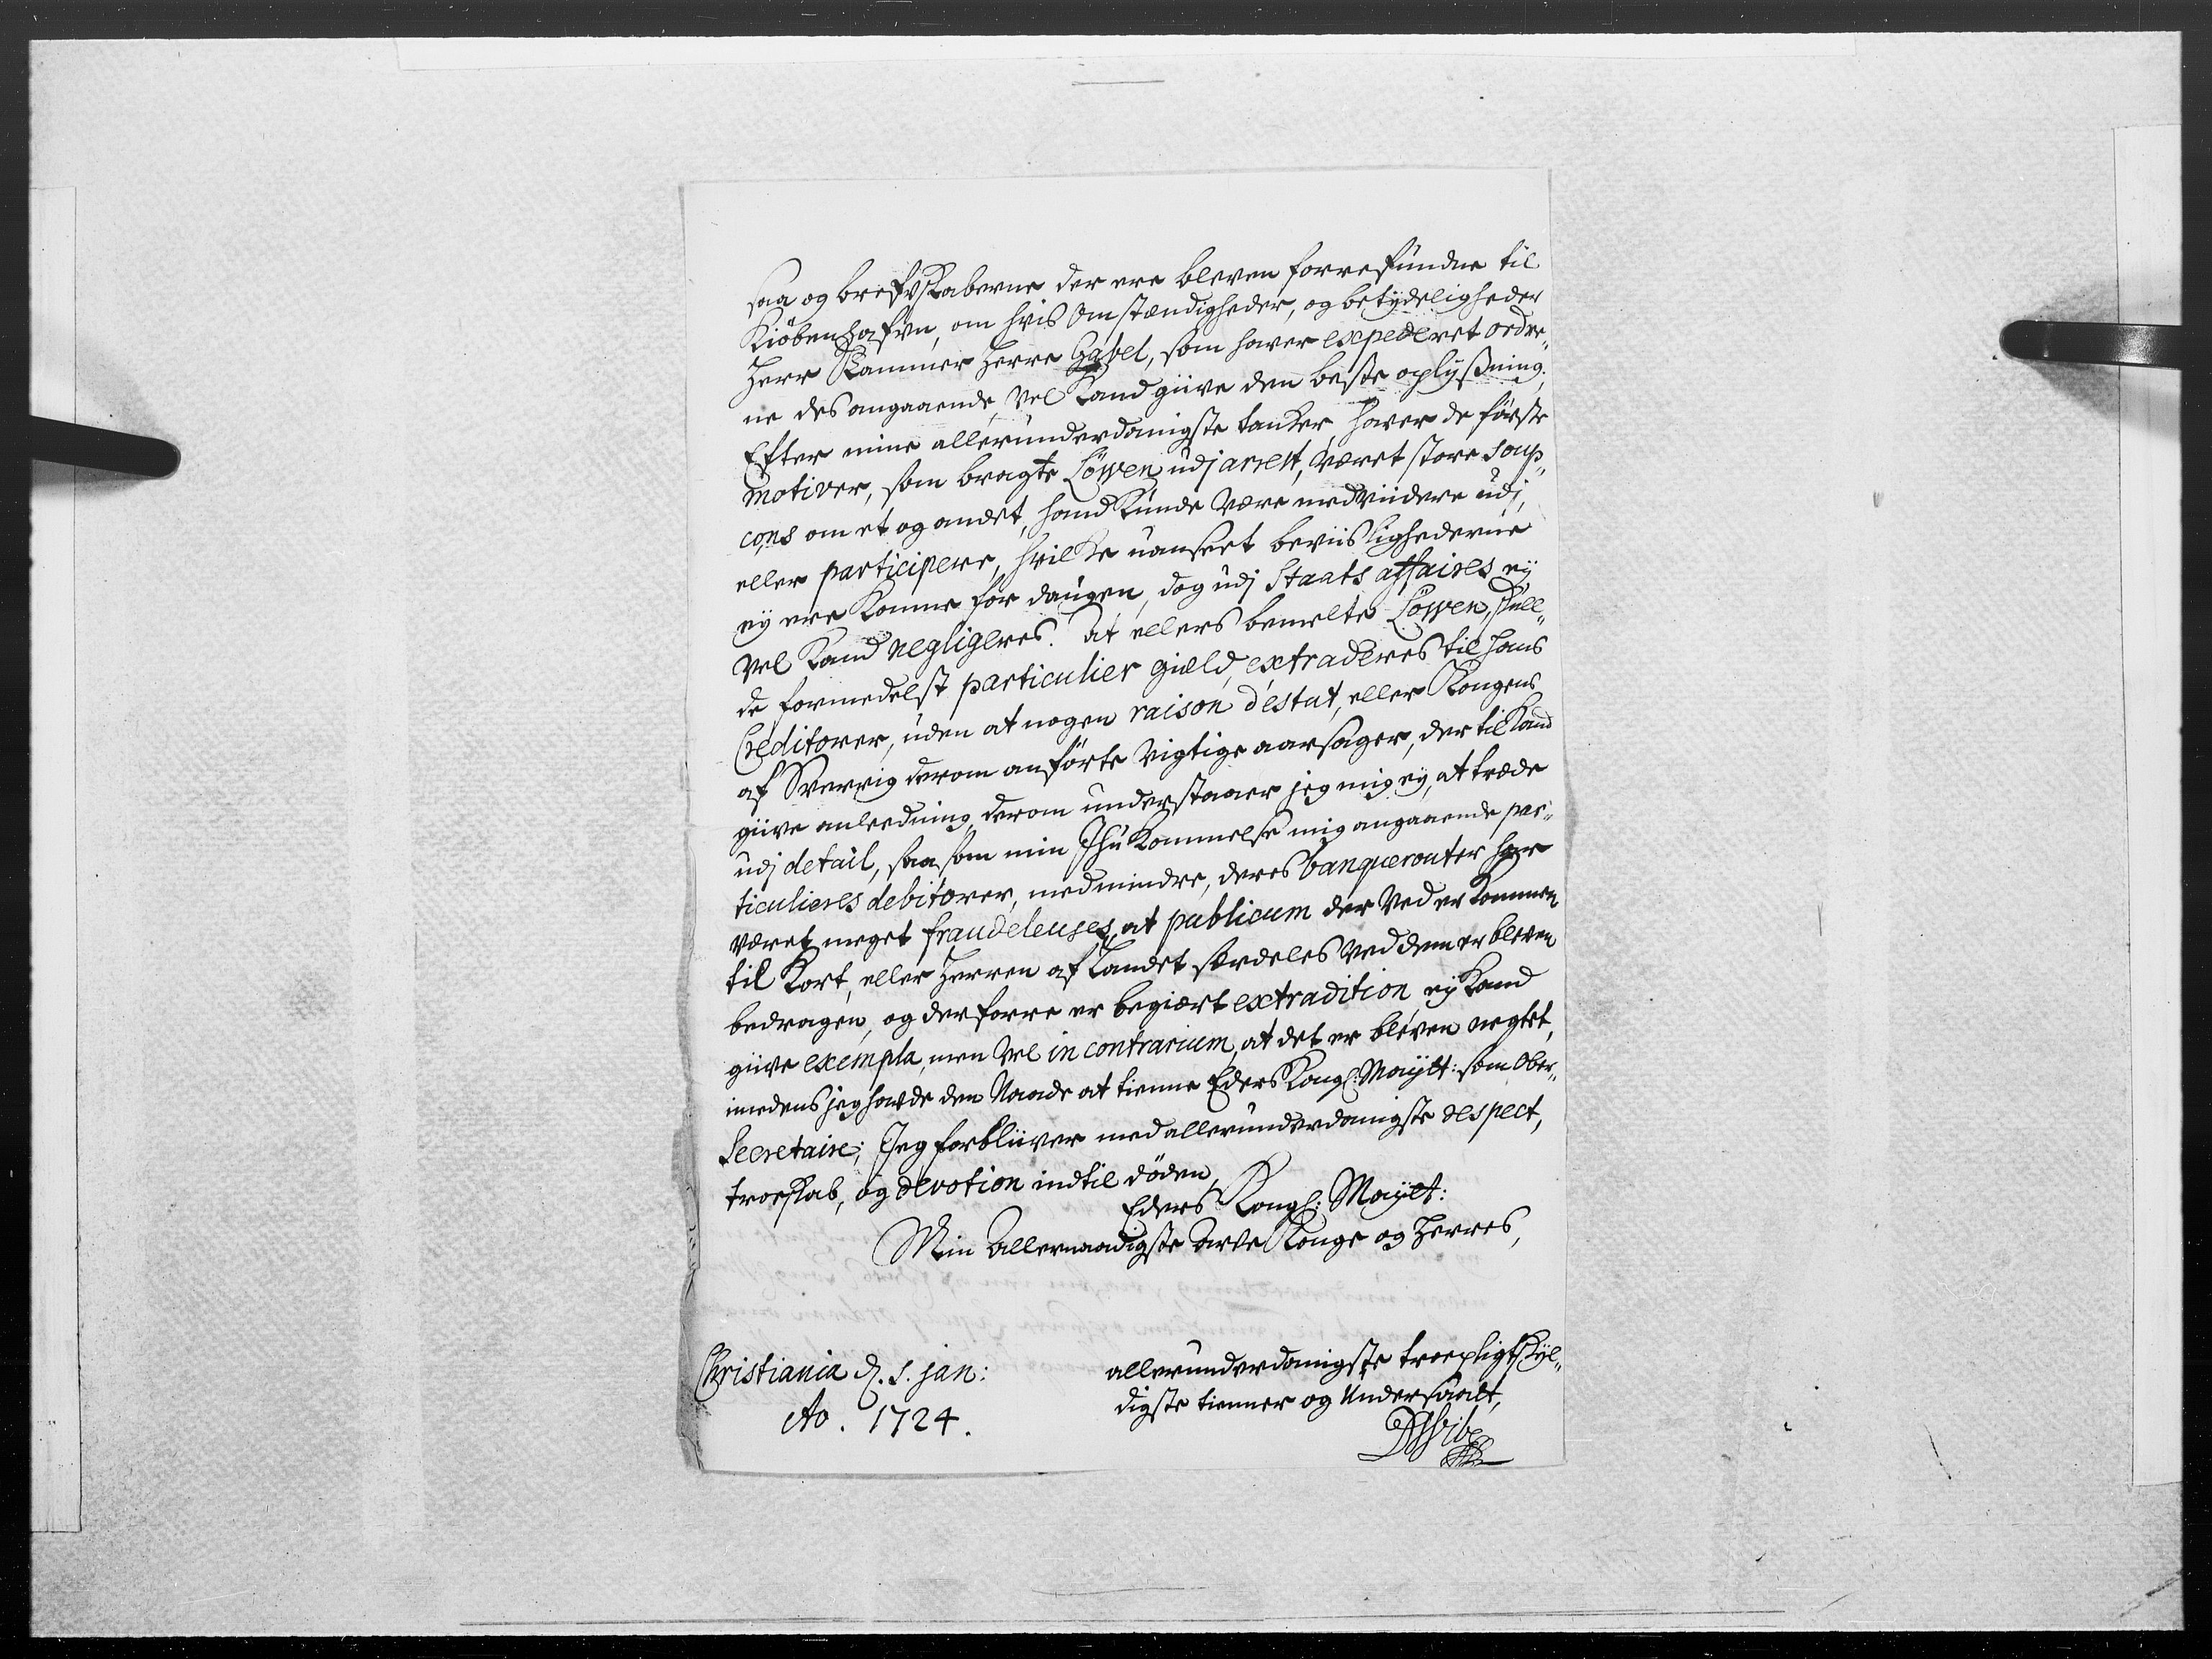 saa og brefvskaberne der ere bleven forrefundne til
Kiöbenhafvn, om hvis Omstændigheder, og betÿdeligheder
Herr Kammer Herre Gabel, som haver expederet ordre„
ne des angaaende, vel kand giive den beste oplÿsning.
Efter mine allerunderdanigste tanker haver de förste
motiver, som bragte Löwen udj arrest, været store soup„
cons om et og andet, hand kunde være medviidere udj,
eller participere, hvilke uanseet beviislighederne
ej ere komne for daugen, dog udj Staats affaires ej
vel kand negligeres. At ellers bemelte Löwen, skull„
de formedelst particulier giæld, extraderes til hans
Creditorer, uden at nogen raison d'estat, eller Kongens
af Sverrig derom anförte vigtige aarsager, der til kand
giive anleedning, derom understaaer jeg mig ej, at træde
udj detail, saasom min Ihukommelse mig angaaende par„
ticulieres debitorer, medmindre, deres banquerouter har
været meget fraudeleuses, at publicum der ved er kommen
til kort, eller Herren af Landet særdeles ved dem er bleven
bedragen, og derforre er begiært extradition, ej kand
giive exempla, men vel in contrarium, at det er bleven negtet,
imedens jeg havde den Naade at tienne Eders Kongl: Maÿtt: som Ober„
Secretaire; Jeg forbliiver med allerunderdanigste respect,
troeskab, og devotion indtil döden,
Eders Kongl: Maÿtt:
Min Allernaadigste Arve Konge og Herres,
Christiania d. 5. jan:
Ao. 1724.
allerunderdanigste troepligtskÿl„
digste tienner og Undersaatt,
DWibe